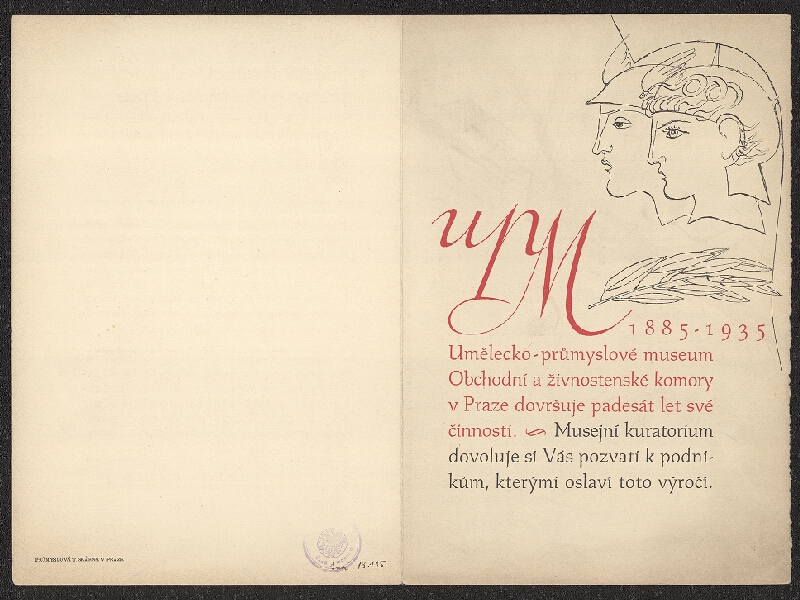 UPM
1885-1935
Umělecko-průmyslové museum
Obchodní a živnostenské komory
v Praze dovršuje padesát let své
činnosti. Musejní kuratorium
dovoluje si Vás pozvati k podni-
kům, kterými oslaví toto výročí.
PRŮMYSLOVÁ TISKÁRNA V PRAZE